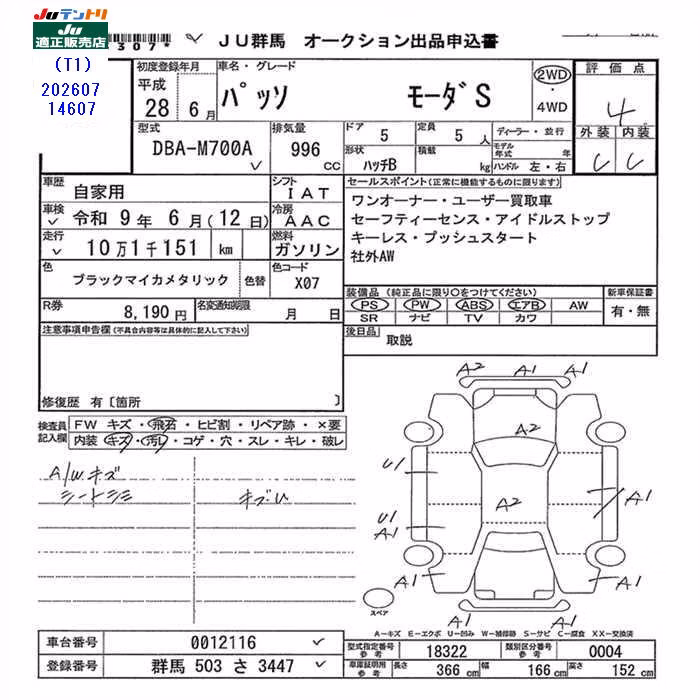 Juテントリ
Ju
適正販売店
307* レ JU群馬 オークション出品申込書
(T1)
202607
14607
初度登録年月 車名・グレード 評価点
平成 28年 6月 パッソ モーダS 2WD・4WD 4
外装 内装
C C
型式 排気量 ドア 5 定員 5人 ディーラー・並行
DBA-M700A レ 996 CC 形状 ハッチB 積載 kg モデル年式 年
ハンドル 左・右
車歴 自家用 シフト IAT
セールスポイント(正常に機能するものに限ります)
車検 レ 令和 9年 6月(12日) 冷房 AAC
ワンオーナー・ユーザー買取車
セーフティーセンス・アイドルストップ
走行 レ 10万1千151 km 燃料 ガソリン
キーレス・プッシュスタート
社外AW
色 ブラックマイカメタリック 色替 色コード X07
装備品(純正品に限り〇をつけてください) 新車保証書
PS PW ABS エアB AW 有・無
SR ナビ TV カワ
R券 8,190円 名変通知期限 月 日
注意事項申告欄(不具合内容等は具体的に記入して下さい)
後日品 取説
修復歴 有〔箇所 〕
検査員記入欄 FW キズ・飛石・ヒビ割・リペア跡・×要
内装 キズ・汚レ・コゲ・穴・スレ・キレ・破レ
A/Wキズ
シートシミ キズU
A2 A1 A1
A2
U1
A2 A1
U1
A1
A1 A1
A1 A1
スペア
A-キズ E-エクボ U-凹み W-補修跡 S-サビ C-腐食 XX-交換済
車台番号 0012116 レ
型式指定番号参考 18322 類別区分番号参考 0004
登録番号 群馬 503 さ 3447 レ
車庫証明用参考 長さ 366 cm 幅 166 cm 高さ 152 cm